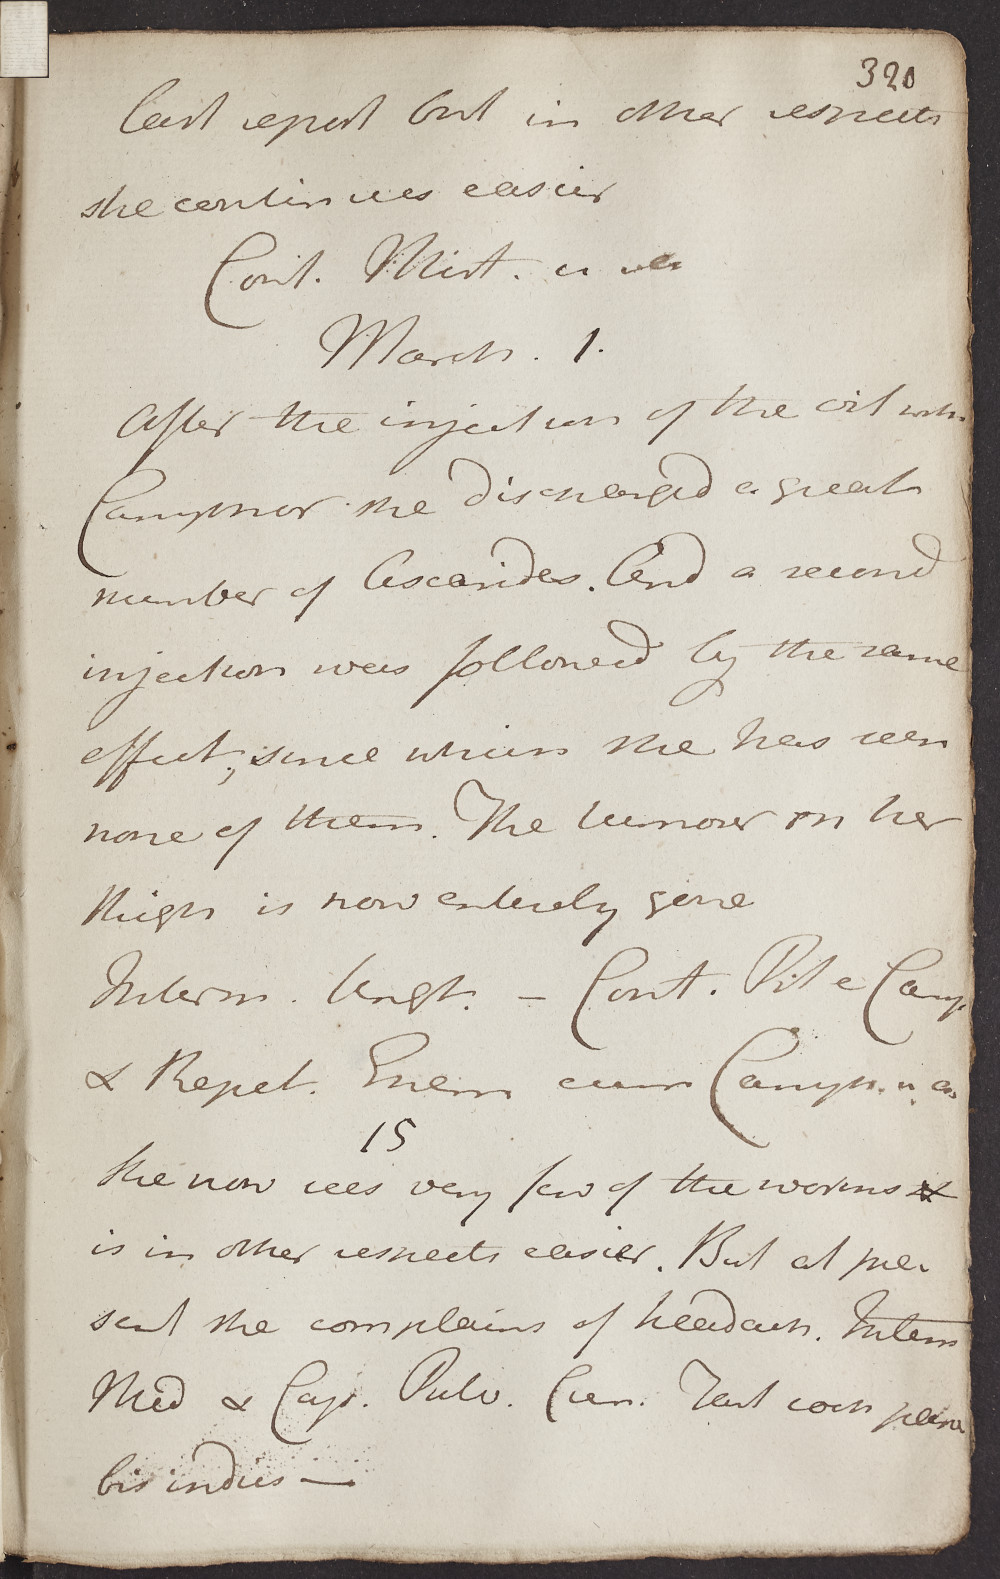 320
last report but in other respects
she continues easier
Cont. Mist.
March. 1.
After the injection of the oil with
Camphor she discharged a great
number of Ascarides. And a second
injection was followed by the same
effect; since which she has seen
none of them. The tumour on her
thigh is now entirely gone
Interm. Ungt. - Cont. Pil e Camp
& Repet. Enem cum Camph.
15
She now sees very few of the worms &
is in other respects easier. But at pre
sent she complains of headach. Interm
Med & Cap. Pulv. Crem. Tart coch
bis indies —